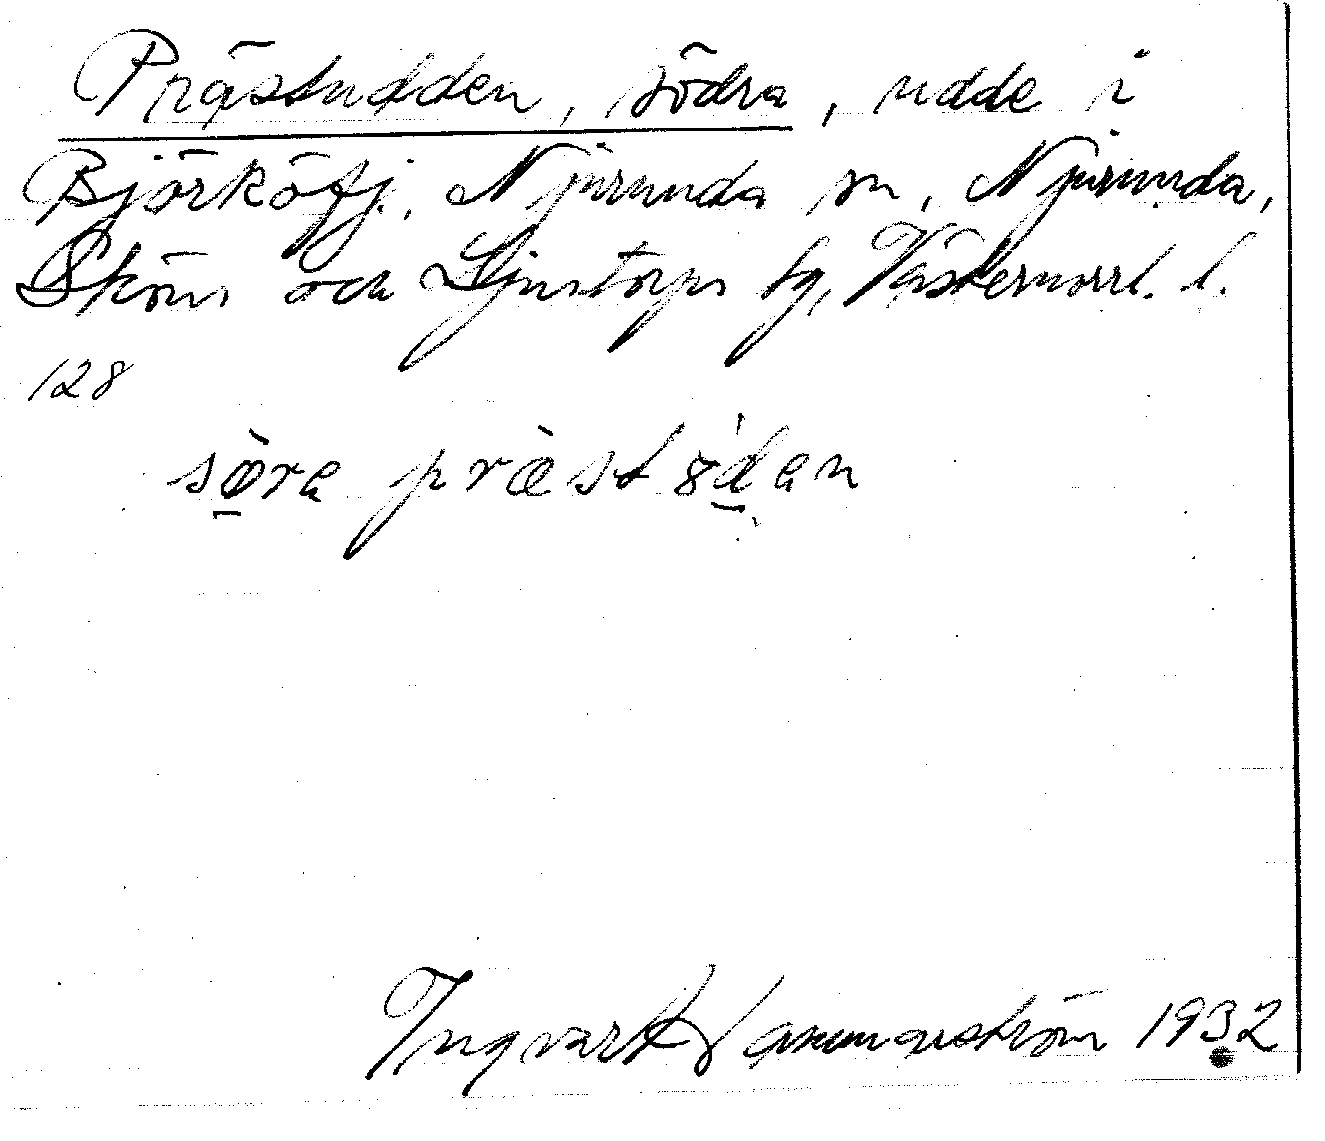 Prästudden, södra, udde i
Björköfj. Njurunda sn, Njurunda,
Sköns och Ljustorps tg, Västernorrl. l.
128
sø̠̀ra præ̀stɤd̠en
Ingvar Hammarström 1932